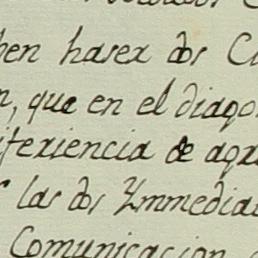 ben haser dos C
n, que en el diago
iferiencia de agra
las dos Ymmedia
Comunicacion